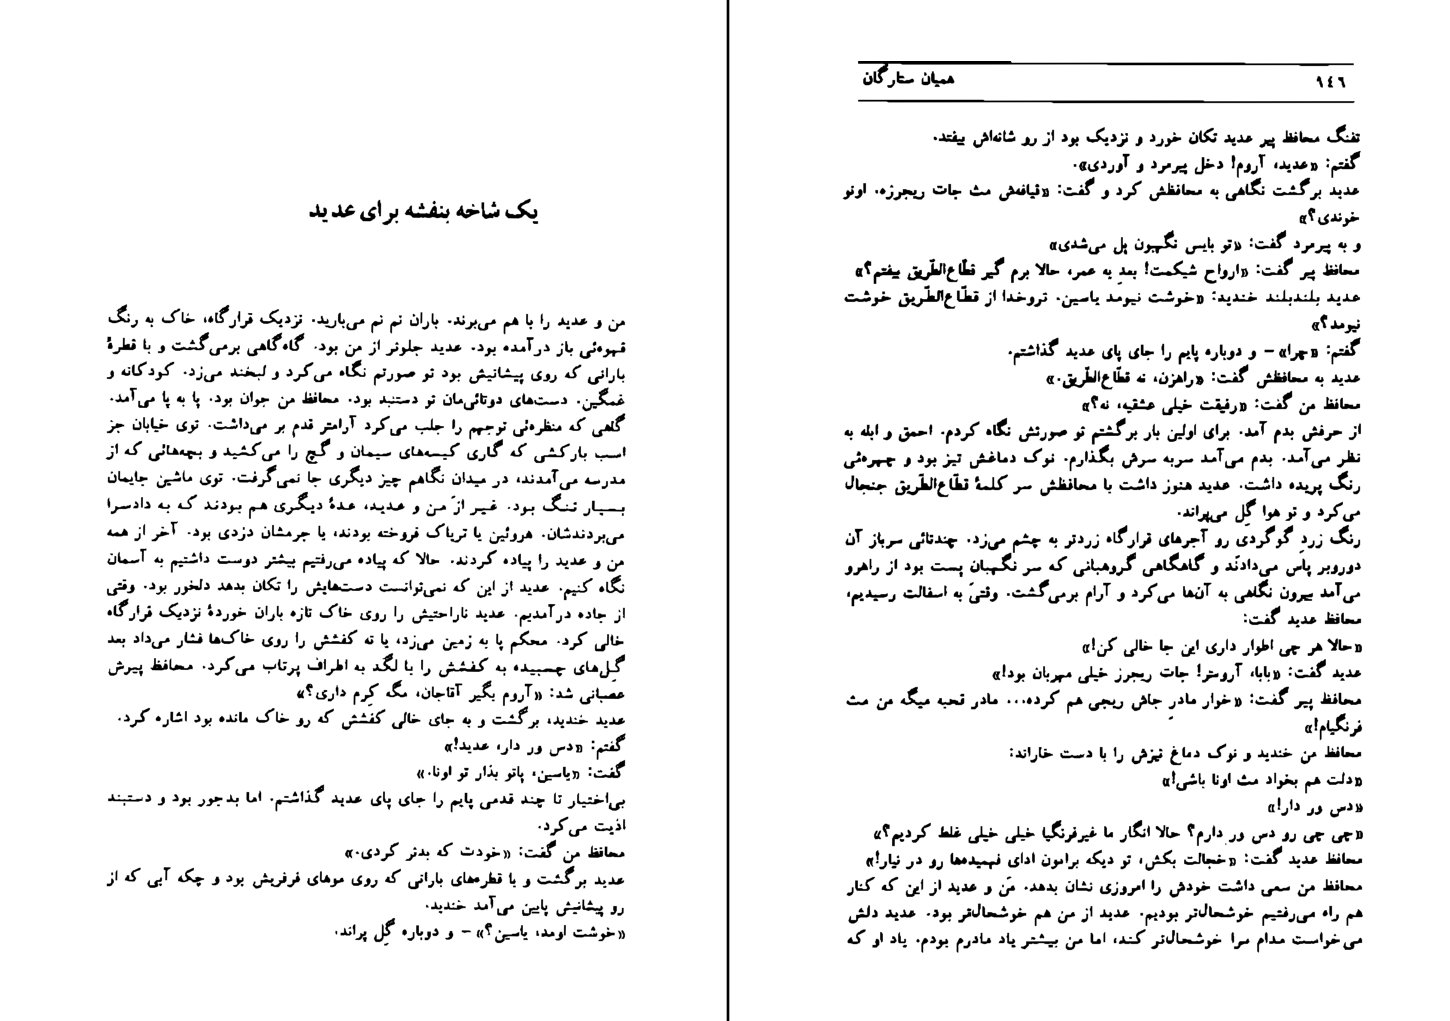 یک شاخه بنفشه برای عدید
من و عدید را با هم می‌برند. باران نم نم می‌بارید. نزدیک قرارگاه، خاک به رنگ
قهوه‌ئی باز درآمده بود. عدید جلوتر از من بود. گاه‌گاهی برمی‌گشت و با قطرهٔ
بارانی که روی پیشانیش بود تو صورتم نگاه می‌کرد و لبخند می‌زد. کودکانه و
غمگین. دست‌های دوتائی‌مان تو دستبند بود. محافظ من جوان بود. پا به پا می‌آمد.
گاهی که منظره‌ئی توجهم را جلب می‌کرد آرامتر قدم بر می‌داشت. توی خیابان جز
اسب بارکشی که گاری کیسه‌های سیمان و گچ را می‌کشید و بچه‌هائی که از
مدرسه می‌آمدند، در میدان نگاهم چیز دیگری جا نمی‌گرفت. توی ماشین جایمان
بسیار تنگ بود. غیر از من و عدید، عدهٔ دیگری هم بودند که به دادسرا
می‌بردندشان. هروئین یا تریاک فروخته بودند، یا جرمشان دزدی بود. آخر از همه
من و عدید را پیاده کردند. حالا که پیاده می‌رفتیم بیشتر دوست داشتیم به آسمان
نگاه کنیم. عدید از این که نمی‌توانست دست‌هایش را تکان بدهد دلخور بود. وقتی
از جاده درآمدیم. عدید ناراحتیش را روی خاک تازه باران خوردهٔ نزدیک قرارگاه
خالی کرد. محکم پا به زمین می‌زد، یا ته کفشش را روی خاک‌ها فشار می‌داد بعد
گِل‌های چسبیده به کفشش را با لگد به اطراف پرتاب می‌کرد. محافظ پیرش
عصبانی شد: «آروم بگیر آقاجان، مگه کِرم داری؟»
عدید خندید، برگشت و به جای خالی کفشش که رو خاک مانده بود اشاره کرد.
گفتم: «دس ور دار، عدید!»
گفت: «یاسین، پاتو بذار تو اونا.»
بی‌اختیار تا چند قدمی پایم را جای پای عدید گذاشتم. اما بدجور بود و دستبند
اذیت می‌کرد.
محافظ من گفت: «خودت که بدتر کردی.»
عدید برگشت و با قطره‌های بارانی که روی موهای فرفریش بود و چکه آبی که از
رو پیشانیش پایین می‌آمد خندید.
«خوشت اومد، یاسین؟» – و دوباره گِل پراند.
۹۴۶
همیان ستارگان
تفنگ محافظ پیر عدید تکان خورد و نزدیک بود از رو شانه‌اش بیفتد.
گفتم: «عدید، آروم! دخل پیرمرد و آوردی».
عدید برگشت نگاهی به محافظش کرد و گفت: «قیافه‌ش مث جات ریجرزه. اونو
خوندی؟»
و به پیرمرد گفت: «تو بایس نگهبون پل می‌شدی»
محافظ پیر گفت: «ارواح شیکمت! بعدِ یه عمر، حالا برم گیر قطّاع‌الطّریق بیفتم؟»
عدید بلندبلند خندید: «خوشت نیومد یاسین. تروخدا از قطّاع‌الطّریق خوشت
نیومد؟»
گفتم: «چرا» – و دوباره پایم را جای پای عدید گذاشتم.
عدید به محافظش گفت: «راهزن، نه قطّاع‌الطّریق.»
محافظ من گفت: «رفیقت خیلی عشقیه، نه؟»
از حرفش بدم آمد. برای اولین بار برگشتم تو صورتش نگاه کردم. احمق و ابله به
نظر می‌آمد. بدم می‌آمد سربه سرش بگذارم. نوک دماغش تیز بود و چهره‌ئی
رنگ پریده داشت. عدید هنوز داشت با محافظش سر کلمهٔ قطّاع‌الطّریق جنجال
می‌کرد و تو هوا گِل می‌پراند.
رنگ زردِ گوگردی رو آجرهای قرارگاه زردتر به چشم می‌زد. چندتائی سرباز آن
دوروبر پاس می‌دادند و گاهگاهی گروهبانی که سر نگهبان پست بود از راهرو
می‌آمد بیرون نگاهی به آن‌ها می‌کرد و آرام برمی‌گشت. وقتی به اسفالت رسیدیم،
محافظ عدید گفت:
«حالا هر چی اطوار داری این جا خالی کن!»
عدید گفت: «بابا، آرومتر! جات ریجرز خیلی مهربان بود!»
محافظ پیر گفت: «خوار مادرِ جاش ریجی هم کرده... مادر قحبه میگه من مث
فرنگیام!»
محافظ من خندید و نوک دماغ تیزش را با دست خاراند:
«دلت هم بخواد مث اونا باشی!»
«دس ور دار!»
«چی چی رو دس ور دارم؟ حالا انگار ما غیرفرنگیا خیلی خیلی غلط کردیم؟»
محافظ عدید گفت: «خجالت بکش، تو دیکه برامون ادای فهمیده‌ها رو در نیار!»
محافظ من سعی داشت خودش را امروزی نشان بدهد. من و عدید از این که کنار
هم راه می‌رفتیم خوشحال‌تر بودیم. عدید از من هم خوشحال‌تر بود. عدید دلش
می‌خواست مدام مرا خوشحال‌تر کند، اما من بیشتر یاد مادرم بودم. یاد او که